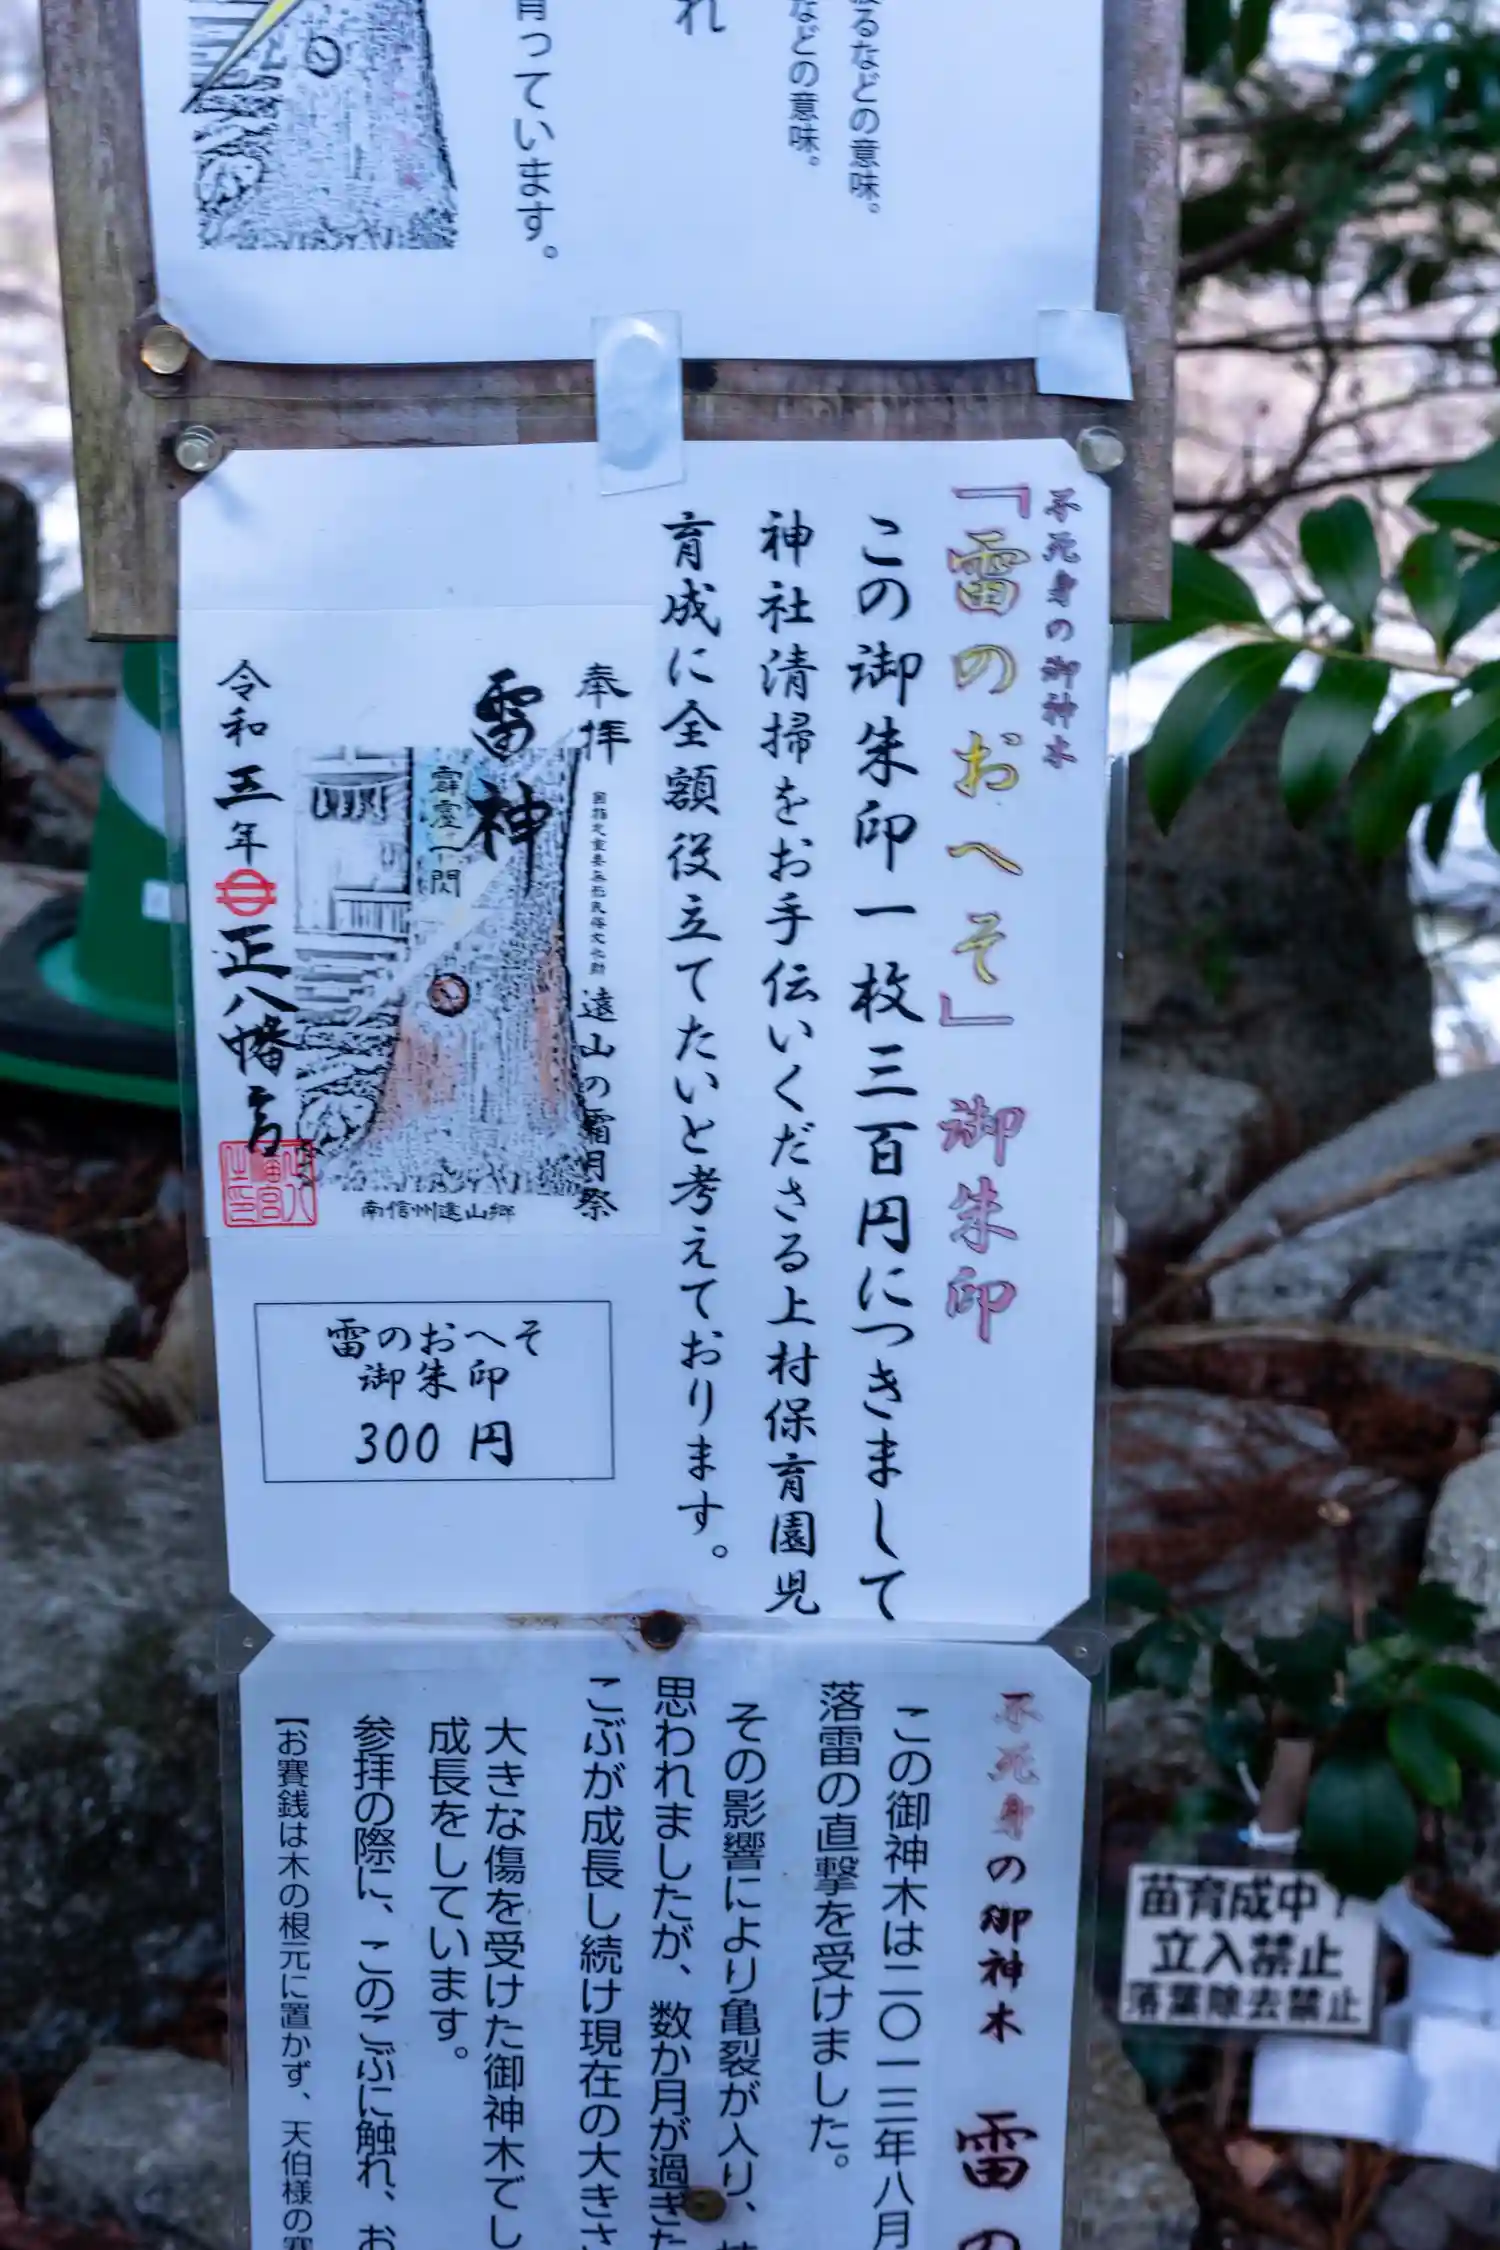 などの意味。
るなどの意味。
れ
育っています。
不死身の御神木
「雷のおへそ」御朱印
この御朱印一枚三百円につきまして
神社清掃をお手伝いくださる上村保育園児
育成に全額役立てたいと考えております。
奉拝
国指定重要無形民俗文化財 遠山の霜月祭
雷神
霹靂一閃
南信州遠山郷
令和 年 正八幡宮
雷のおへそ
御朱印
300円
不死身の御神木 雷の
この御神木は二〇一三年八月
落雷の直撃を受けました。
その影響により亀裂が入り、
思われましたが、数か月が過ぎた
こぶが成長し続け現在の大きさ
大きな傷を受けた御神木でし
成長をしています。
参拝の際に、このこぶに触れ、お
【お賽銭は木の根元に置かず、天伯様の賽
苗育成中!
立入禁止
落葉除去禁止